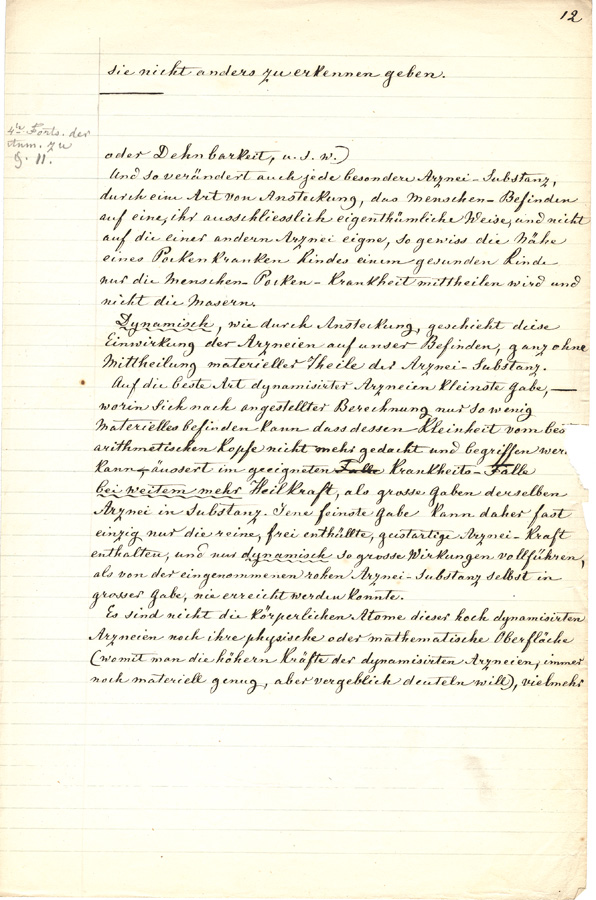 12
sie nicht anders zu erkennen geben.
4te Forts. der
Anm. zu
§. 11.
oder Dehnbarkeit, u. s. w.)
Und so verändert auch jede besondere Arznei-Substanz,
durch eine Art von Ansteckung, das Menschen-Befinden
auf eine, ihr ausschliesslich eigenthümliche Weise, und nicht
auf die einer andern Arznei eigne, so gewiss die Nähe
eines Pockenkranken Kindes einem gesunden Kinde
nur die Menschen-Pocken-Krankheit mittheilen wird und
nicht die Masern.
Dynamisch, wie durch Ansteckung, geschieht diese
Einwirkung der Arzneien auf unser Befinden, ganz ohne
Mittheilung materieller Theile der Arznei-Substanz.
Auf die beste Art dynamisirter Arzneien kleinste Gabe, —
worin sich nach angestellter Berechnung nur so wenig
Materielles befinden kann dass dessen Kleinheit vom bes
arithmetischen Kopfe nicht mehr gedacht und begriffen wer
kann, äussert in geeigneten Falle Krankheits-Fälle
bei weitem mehr Heilkraft, als grosse Gaben derselben
Arznei in Substanz. Jene feinste Gabe kann daher fast
einzig nur die reine, frei enthüllte, geistartige Arznei-Kraft
enthalten, und nur dynamisch so grosse Wirkungen vollführen,
als von der eingenommenen rohen Arznei-Substanz selbst in
grosser Gabe, nie erreicht werden konnte.
Es sind nicht die körperlichen Atome dieser hoch dynamisirten
Arzneien noch ihre physische oder mathematische Oberfläche
(womit man die höhern Kräfte der dynamisirten Arzneien, immer
noch materiell genug, aber vergeblich deuteln will), vielmehr